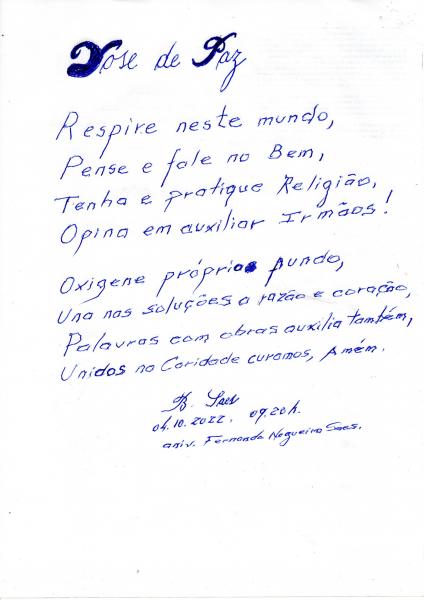 Dose de Paz
Respire neste mundo,
Pense e fale no Bem,
Tenha e pratique Religião,
Opina em auxiliar Irmãos!
Oxigene próprios pundo,
Una nas soluções a razão e coração,
Palavras com obras auxilia também,
Unidos na Caridade curamos, Amém.
B. Saes
04.10.2022. 09,20h.
aniv. Fernanda Nogueira Saes.